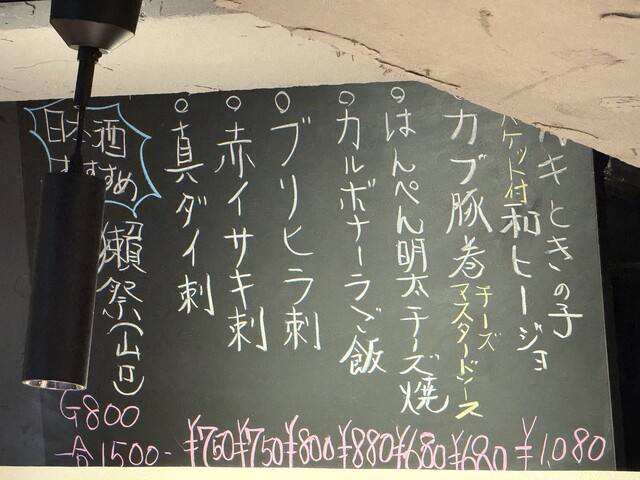 キときの子
バケット付
和ヒージョ
¥1,080
カブ豚巻
チーズ
マスタードソース
¥680
はんぺん明太チーズ焼
¥680
カルボナーラご飯
¥880
ブリヒラ刺
¥800
赤イサキ刺
¥750
真ダイ刺
¥750
日本酒
おすすめ
獺祭(山口)
G800
一合1500-